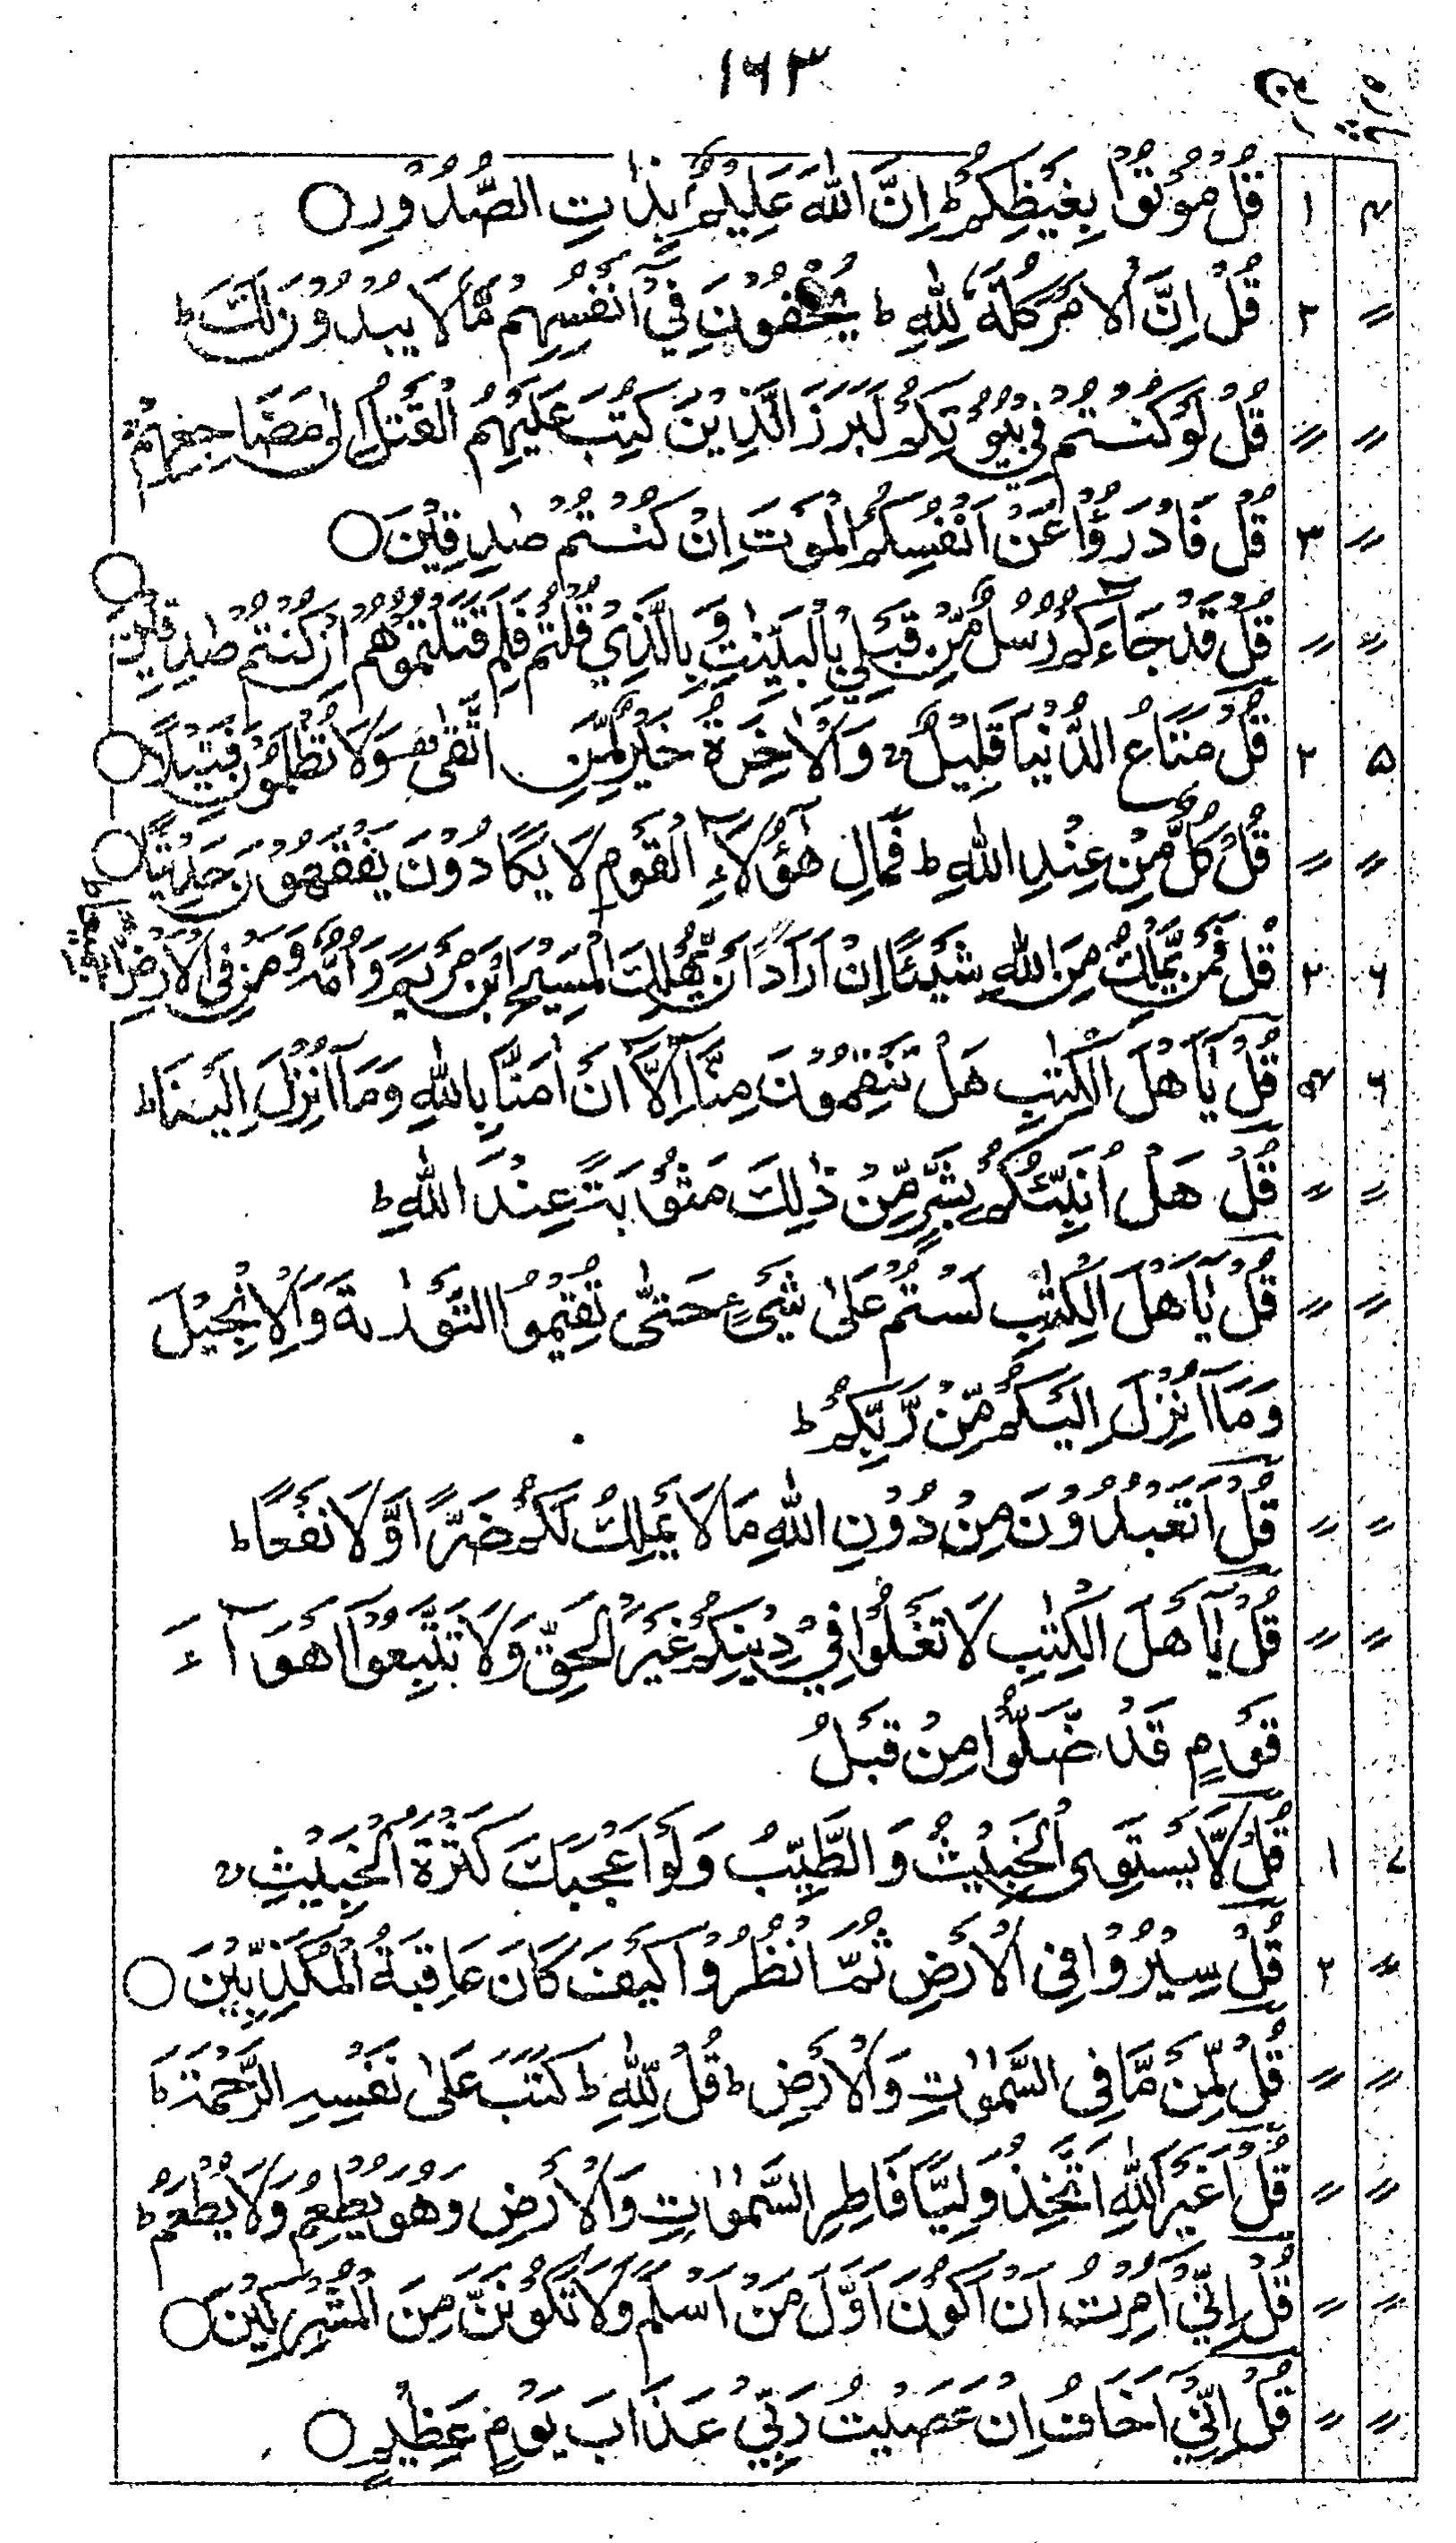 ۱۶۳
پارہ رکوع
۴ ۱ قُلْ مُوْتُوْا بِغَيْظِكُمْ ؕ اِنَّ اللّٰهَ عَلِيْمٌۢ بِذَاتِ الصُّدُوْرِ ○
〃 ۲ قُلْ اِنَّ الْاَمْرَ كُلَّهٗ لِلّٰهِ ؕ يُخْفُوْنَ فِيْۤ اَنْفُسِهِمْ مَّا لَا يُبْدُوْنَ لَكَ ؕ
〃 〃 قُلْ لَّوْ كُنْتُمْ فِيْ بُيُوْتِكُمْ لَبَرَزَ الَّذِيْنَ كُتِبَ عَلَيْهِمُ الْقَتْلُ اِلٰى مَضَاجِعِهِمْ
〃 ۳ قُلْ فَادْرَءُوْا عَنْ اَنْفُسِكُمُ الْمَوْتَ اِنْ كُنْتُمْ صٰدِقِيْنَ ○
〃 〃 قُلْ قَدْ جَآءَكُمْ رُسُلٌ مِّنْ قَبْلِيْ بِالْبَيِّنٰتِ وَ بِالَّذِيْ قُلْتُمْ فَلِمَ قَتَلْتُمُوْهُمْ اِنْ كُنْتُمْ صٰدِقِيْنَ ○
۵ ۲ قُلْ مَتَاعُ الدُّنْيَا قَلِيْلٌ ۚ وَالْاٰخِرَةُ خَيْرٌ لِّمَنِ اتَّقٰى وَلَا تُظْلَمُوْنَ فَتِيْلًا ○
〃 〃 قُلْ كُلٌّ مِّنْ عِنْدِ اللّٰهِ ؕ فَمَالِ هٰۤؤُلَآءِ الْقَوْمِ لَا يَكَادُوْنَ يَفْقَهُوْنَ حَدِيْثًا ○
۶ ۳ قُلْ فَمَنْ يَّمْلِكُ مِنَ اللّٰهِ شَيْئًا اِنْ اَرَادَ اَنْ يُّهْلِكَ الْمَسِيْحَ ابْنَ مَرْيَمَ وَ اُمَّهٗ وَمَنْ فِي الْاَرْضِ جَمِيْعًا ؕ
۶ ۹ قُلْ يٰۤاَهْلَ الْكِتٰبِ هَلْ تَنْقِمُوْنَ مِنَّاۤ اِلَّاۤ اَنْ اٰمَنَّا بِاللّٰهِ وَمَاۤ اُنْزِلَ اِلَيْنَا ؕ
〃 〃 قُلْ هَلْ اُنَبِّئُكُمْ بِشَرٍّ مِّنْ ذٰلِكَ مَثُوْبَةً عِنْدَ اللّٰهِ ؕ
〃 〃 قُلْ يٰۤاَهْلَ الْكِتٰبِ لَسْتُمْ عَلٰى شَيْءٍ حَتّٰى تُقِيْمُوا التَّوْرٰىةَ وَالْاِنْجِيْلَ
وَمَاۤ اُنْزِلَ اِلَيْكُمْ مِّنْ رَّبِّكُمْ ؕ
〃 〃 قُلْ اَتَعْبُدُوْنَ مِنْ دُوْنِ اللّٰهِ مَا لَا يَمْلِكُ لَكُمْ ضَرًّا وَّلَا نَفْعًا ؕ
〃 〃 قُلْ يٰۤاَهْلَ الْكِتٰبِ لَا تَغْلُوْا فِيْ دِيْنِكُمْ غَيْرَ الْحَقِّ وَلَا تَتَّبِعُوْۤا اَهْوَآءَ
قَوْمٍ قَدْ ضَلُّوْا مِنْ قَبْلُ
۷ ۱ قُلْ لَّا يَسْتَوِى الْخَبِيْثُ وَالطَّيِّبُ وَلَوْ اَعْجَبَكَ كَثْرَةُ الْخَبِيْثِ ۚ
〃 ۲ قُلْ سِيْرُوْا فِى الْاَرْضِ ثُمَّ انْظُرُوْا كَيْفَ كَانَ عَاقِبَةُ الْمُكَذِّبِيْنَ ○
〃 〃 قُلْ لِّمَنْ مَّا فِى السَّمٰوٰتِ وَالْاَرْضِ ؕ قُلْ لِّلّٰهِ ؕ كَتَبَ عَلٰى نَفْسِهِ الرَّحْمَةَ ؕ
〃 〃 قُلْ اَغَيْرَ اللّٰهِ اَتَّخِذُ وَلِيًّا فَاطِرِ السَّمٰوٰتِ وَالْاَرْضِ وَهُوَ يُطْعِمُ وَلَا يُطْعَمُ ؕ
〃 〃 قُلْ اِنِّيْۤ اُمِرْتُ اَنْ اَكُوْنَ اَوَّلَ مَنْ اَسْلَمَ وَلَا تَكُوْنَنَّ مِنَ الْمُشْرِكِيْنَ ○
〃 〃 قُلْ اِنِّيْۤ اَخَافُ اِنْ عَصَيْتُ رَبِّيْ عَذَابَ يَوْمٍ عَظِيْمٍ ○